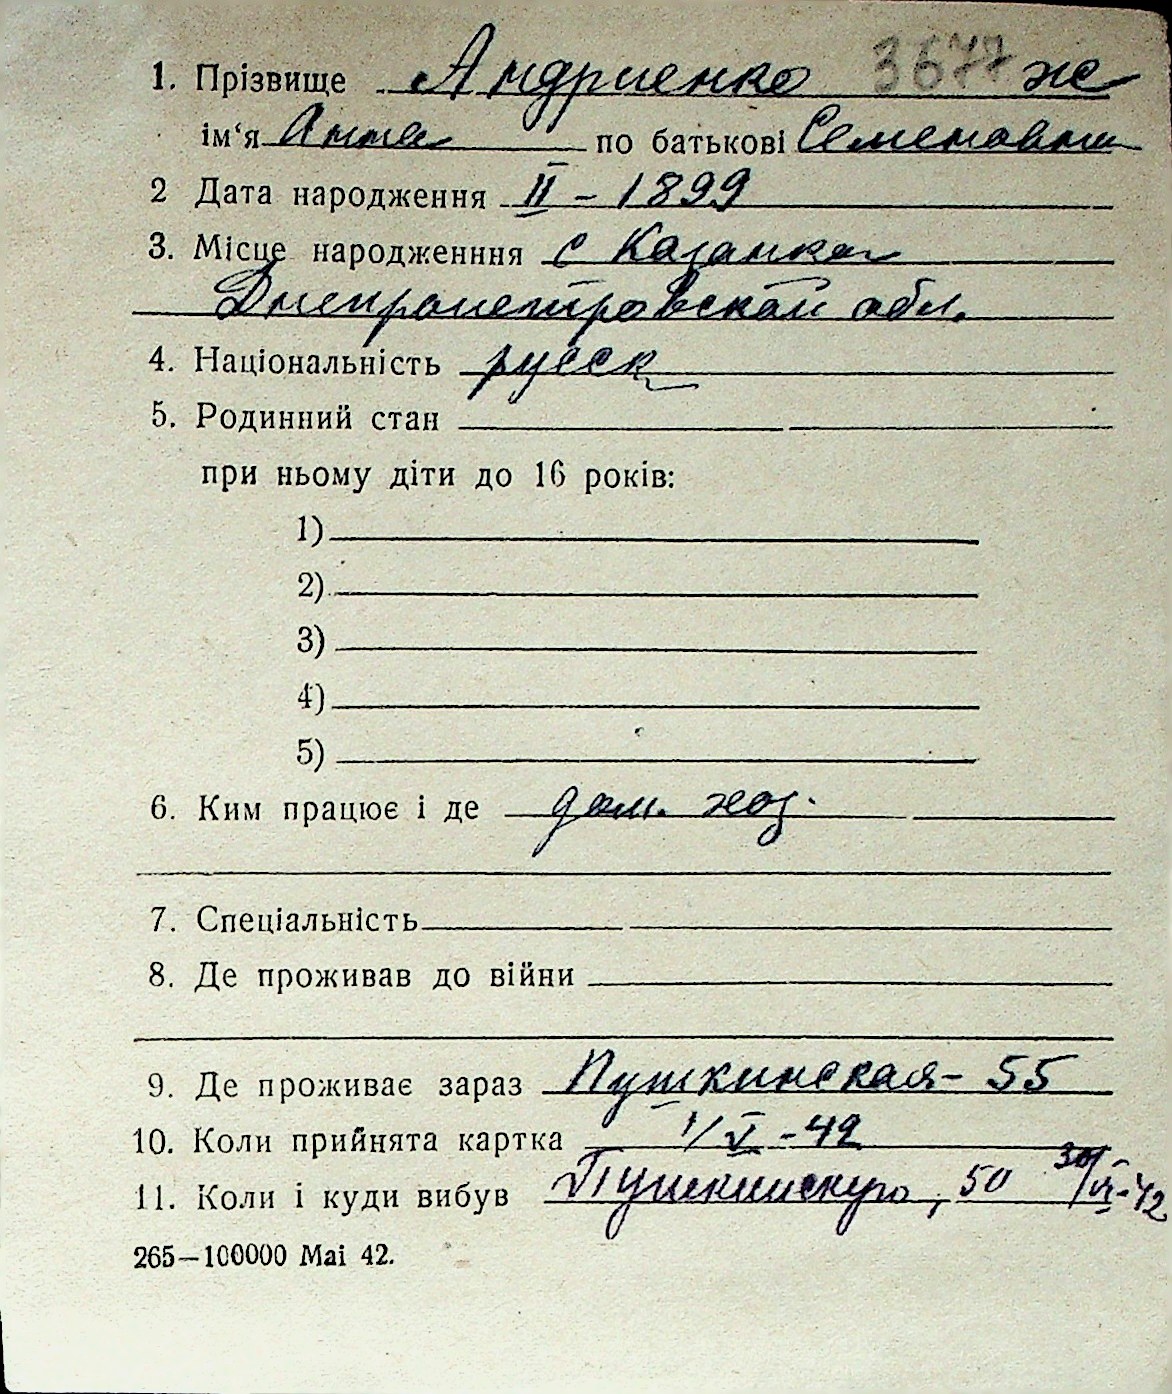 1. Прізвище Андриенко 3677 ж
ім‘я Анна по батькові Семеновна
2 Дата народження II – 1899
3. Місце народженння с Казанка
Днепропетровской обл.
4. Національність русск
5. Родинний стан
при ньому діти до 16 років:
1)
2)
3)
4)
5)
6. Ким працює і де дом. хоз.
7. Спеціальність
8. Де проживав до війни
9. Де проживає зараз Пушкинская - 55
10. Коли прийнята картка 1/V - 42
11. Коли і куди вибув Пушкинскую, 50 30/VI-42
265—100000 Mai 42.